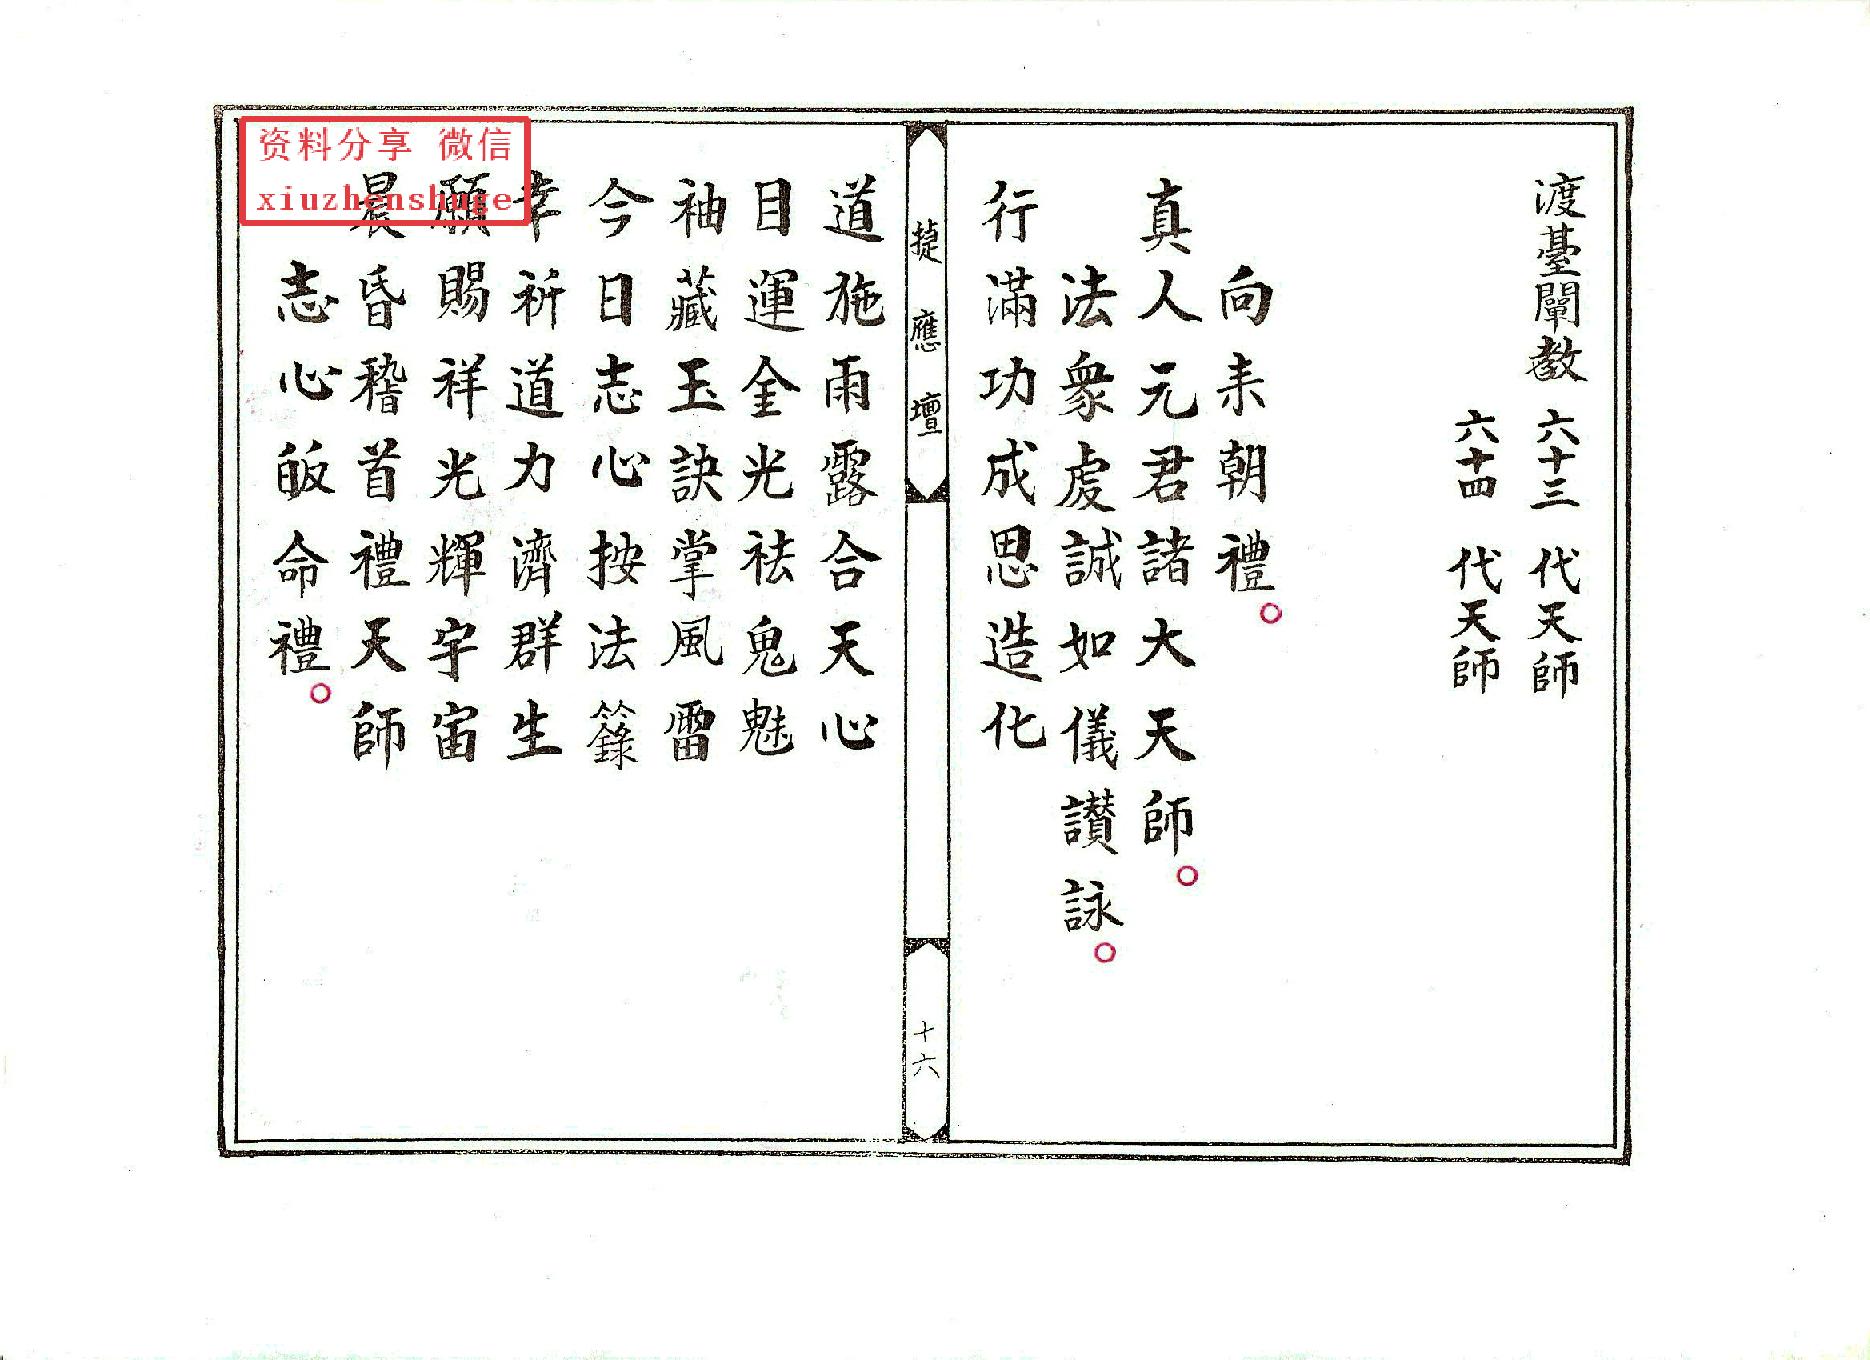 渡臺闡教 六十三 代天師
六十四 代天師
向来朝禮
真人元君諸大天師
法衆虔誠如儀讃詠
行滿功成思造化
捷應壇
十六
道施雨露合天心
目運金光祛鬼魅
袖藏玉訣掌風雷
今日志心按法籙
幸祈道力濟群生
願賜祥光輝宇宙
晨昏稽首禮天師
志心皈命禮
资料分享 微信
xiuzhenshuge